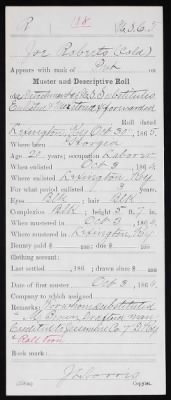 R 118 U.S.C.T.
Joe Roberts (Cold)
Appears with rank of Pvt on
Muster and Descriptive Roll
of Detachment of U.S. Substitutes
Enlisted forwarded
Roll dated
Lexington, Ky Oct 30, 186 .
Where born Georgia
Age 20 years; occupation Laborer
When enlisted Oct 3, 1864
Where enlisted Lexington, Ky
For what period enlisted 3 years.
Eyes Blk ; hair Blk
Complexion Blk ; height 5 ft. 7 in.
When mustered in Oct 3, 1864
Where mustered in Lexington, Ky
Bounty paid $ 100 ; due $ 100
Clothing account:
Last settled , 186 ; drawn since $ 100
Date of first muster Oct 3, 1864
Company to which assigned
Remarks: For whom substituted
man
Credited to 7 D. Ky
Roll
Book mark:
Copyist.